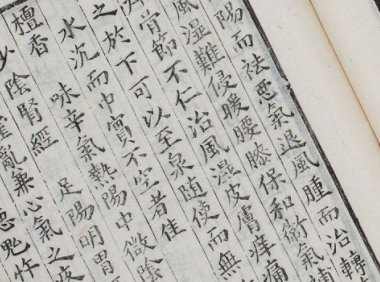 陽而祛惡氣退風腫而治轉
風濕難侵暖腰膝保和衛氣補
骨節不仁治風濕皮膚痒痛
之放下可以至泉隨使而無
水沉而中實不空者佳
檀香 味辛氣熱陽中微陰
少陰腎經 足陽明胃
霍亂心氣之疼
惡鬼忤